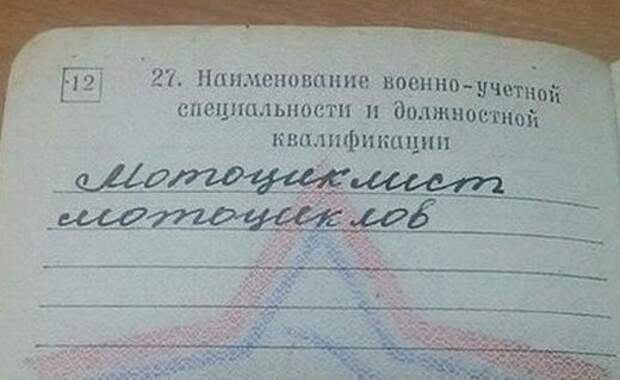 12
27. Наименование военно-учетной
специальности и должностной
квалификации
Мотоциклист
мотоциклов